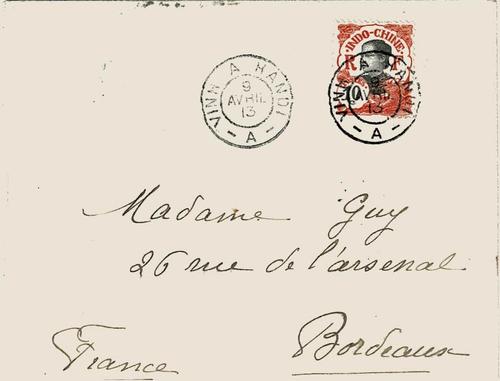 INDO-CHINE
R F
10
VINH A HANOI
9
AVRIL
13
- A -
VINH A HANOI
9
AVRIL
13
- A -
Madame Guy
26 rue de l'arsenal
Bordeaux
France